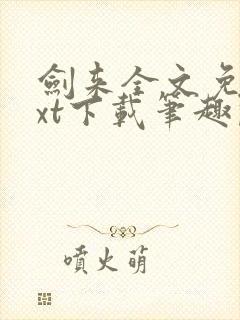 劍来全文免
xt下載筆趣
噴火萌